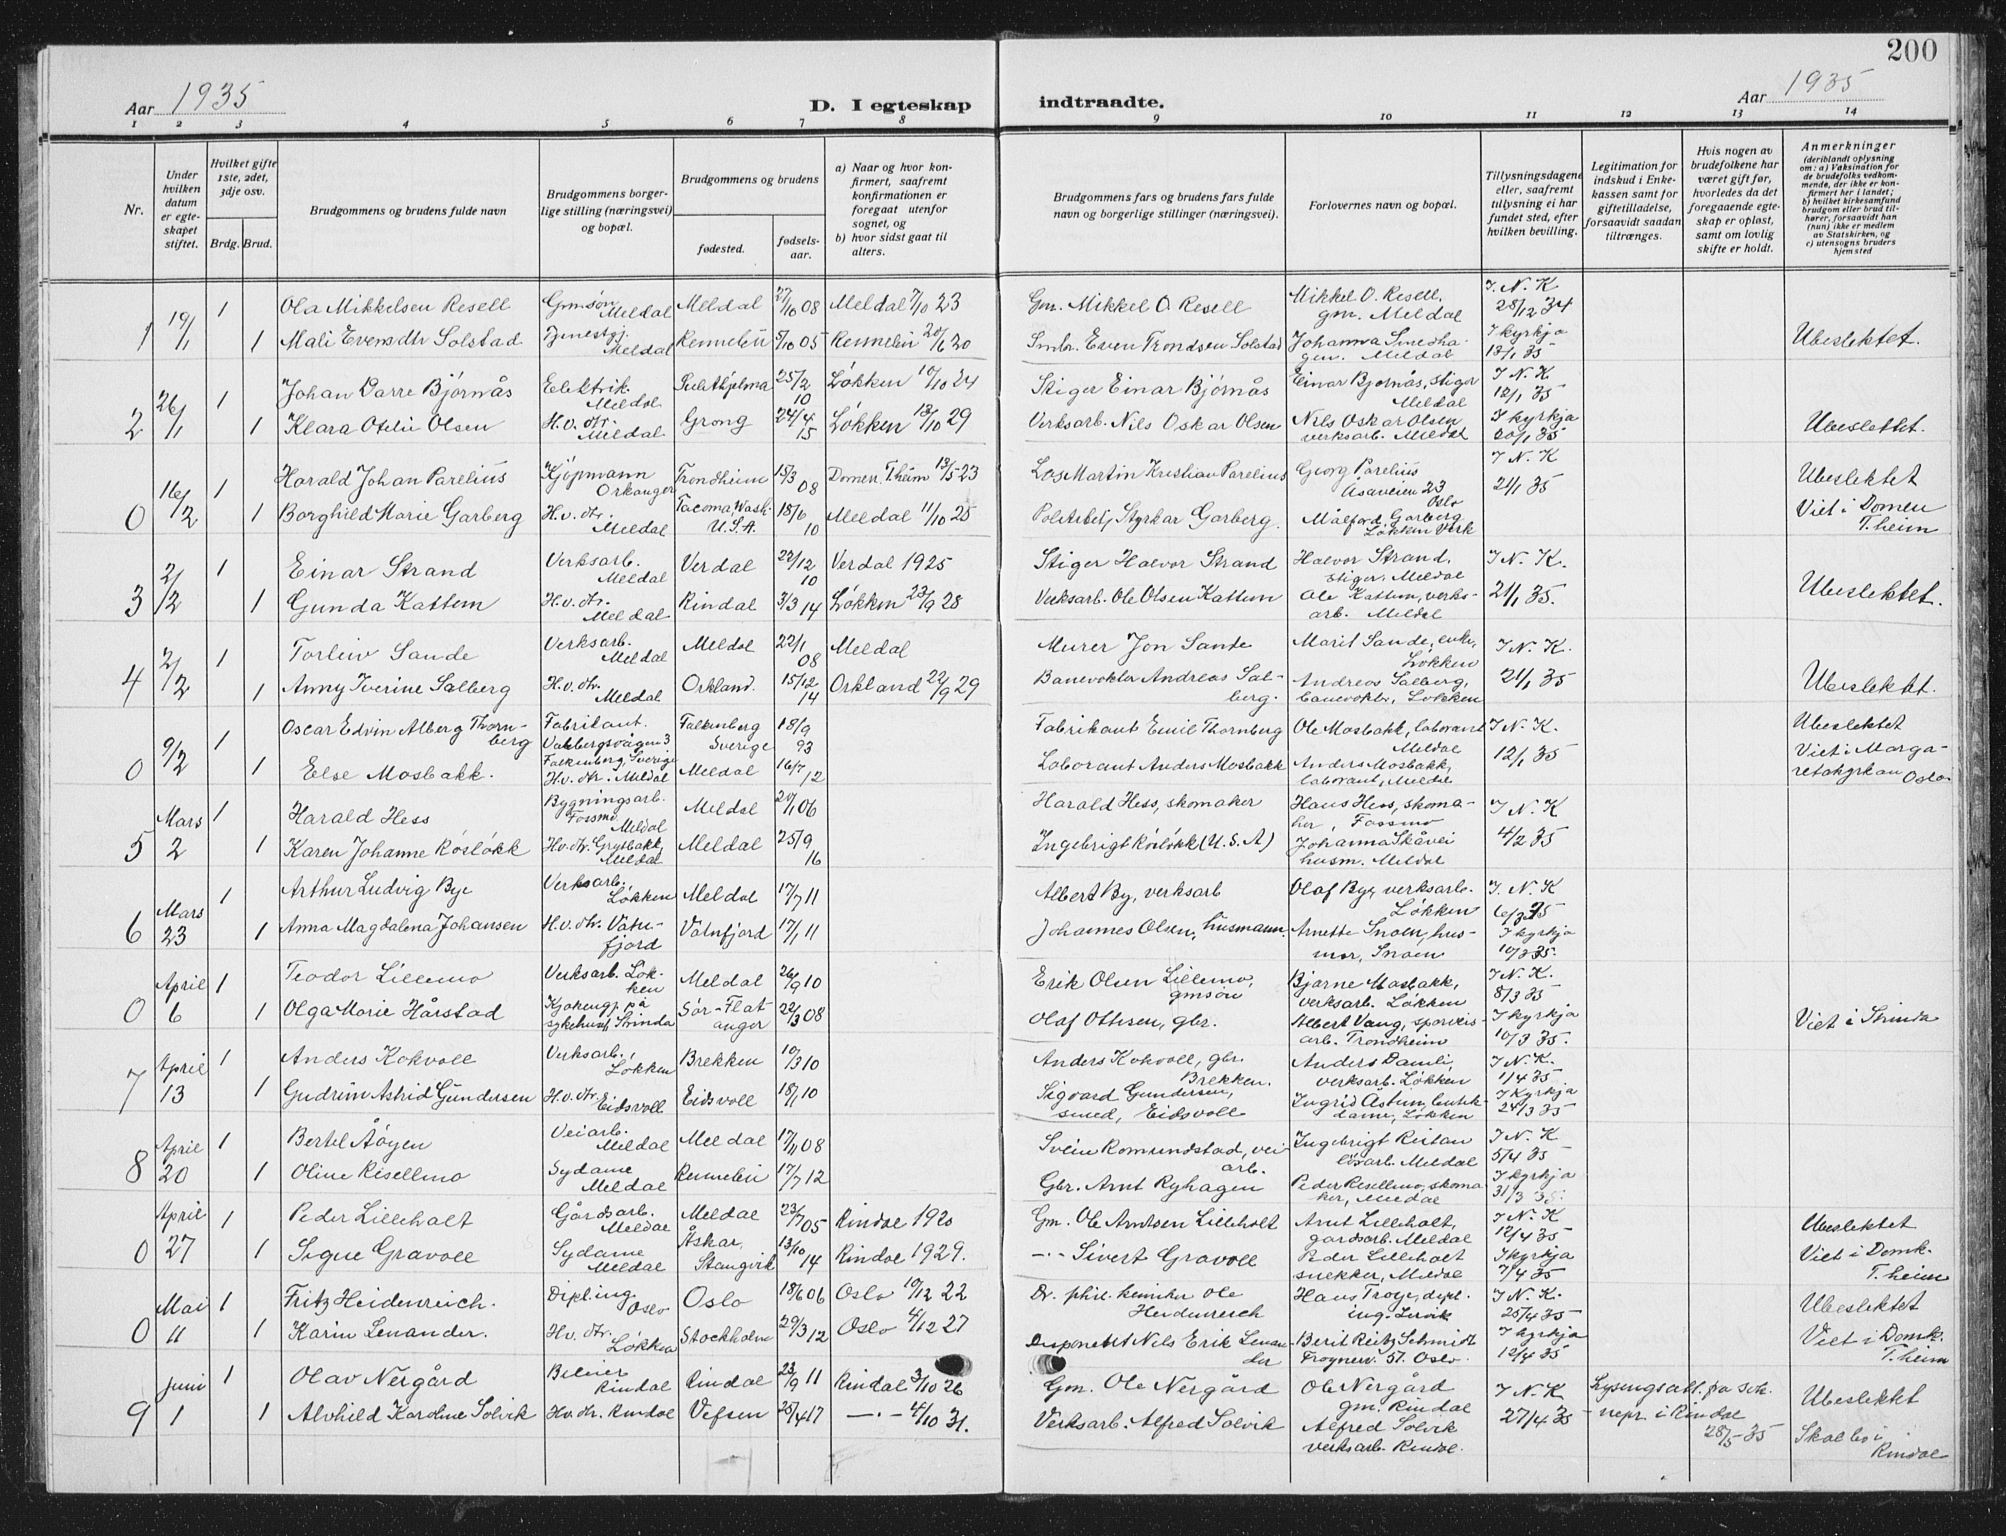 200
Aar 1935
D. I egteskap indtraadte.
Aar 1935
1 2 3 4 5 6 7 8 9 10 11 12 13 14
Nr.
Under hvilken datum er egteskapet stiftet.
Hvilket gifte 1ste, 2det, 3dje osv.
Brdg. Brud.
Brudgommens og brudens fulde navn
Brudgommens borgerlige stilling (næringsvei) og bopæl.
Brudgommens og brudens
fødested.
fødselsaar.
a) Naar og hvor konfirmert, saafremt konfirmationen er foregaat utenfor sognet, og
b) hvor sidst gaat til alters.
Brudgommens fars og brudens fars fulde navn og borgerlige stillinger (næringsvei).
Forlovernes navn og bopæl.
Tillysningsdagene eller, saafremt tillysning ei har fundet sted, efter hvilken bevilling.
Legitimation for indskud i Enkekassen samt for giftetilladelse, forsaavidt saadan tiltrænges.
Hvis nogen av brudefolkene har været gift før, hvorledes da det foregaaende egteskap er opløst, samt om lovlig skifte er holdt.
Anmerkninger
(deriblandt oplysning om: a) Vaksination for de brudefolks vedkommende, der ikke er konfirmert her i landet;
b) hvilket kirkesamfund brudgom eller brud tilhører, forsaavidt han (hun) ikke er medlem av Statskirken, og
c) utensogns bruders hjemsted
1 19/1 1 Ola Mikkelsen Resell Gmsøn Meldal Meldal 27/10 08 Meldal 7/10 23 Gm. Mikkel O. Resell Mikkel O. Resell, gm. Meldal I. N. K 28/12 34
1 Mali Evensdtr Solstad Tjenestgj. Meldal Rennebu 5/10 05 Rennebu 20/6 20 Smbr. Even Trondsen Solstad Johanna Smedhagen, Meldal I kyrkja 13/1 35 Ubeslektet.
2 26/1 1 Johan Darre Bjórnås Elektrik. Meldal Sulithjelma 25/2 10 Løkken 10/10 24 Stiger Einar Bjórnås Einar Bjørnås, stiger Meldal I N. K 12/1 35
1 Klara Otelie Olsen H.v. dtr. Meldal Grong 24/4 15 Løkken 13/10 29 Verksarb. Nils Oskar Olsen Nils Oskar Olsen verksarb. Meldal I kyrkja 20/1 35 Ubeslektet.
0 16/2 1 Harald Johan Parelius Kjøpmann Orkanger Trondheim 15/3 08 Domen, T.heim 13/5 23 Los Martin Kristian Parelius Georg Parelius Åsaveien 23 Oslo I N. K 21/1 35 Ubeslektet
1 Borghild Marie Garberg H.v. dtr. Meldal Tacoma, Wash. U.S.A. 18/6 10 Meldal 11/10 25 Politibetj. Styrkar Garberg. Målfrid Garberg Løkken Verk Viet i Domen T.heim
3 2/2 1 Einar Strand Verksarb. Meldal Verdal 22/12 10 Verdal 1925 Stiger Halvor Strand Halvor Strand, stiger, Meldal I N. K.
1 Gunda Kattem H.v. dtr. Meldal Rindal 3/3 14 Løkken 23/9 28 Verksarb. Ole Olsen Kattem Ole Kattem, verksarb. Meldal 21/1 35. Ubeslektet.
4 2/2 1 Torleiv Sande Verksarb. Meldal Meldal 22/1 08 Meldal Murer Jon Sande Marit Sande, enke, Løkken I N. K.
1 Anny Iverine Salberg H.v. dtr. Meldal Orkland. 15/12 14 Orkland 22/9 29 Banevokter Andreas Salberg. Andreas Salberg, banevokter, Løkken 21/1 35 Ubeslektet.
0 9/2 1 Oscar Edvin Alberg Thornberg Fabrikant. Falkenberg, Sverige Falkenberg Sverige 18/9 93 Fabrikant Emil Thornberg Ole Mosbakk, laborant Meldal I N. K. Ubeslektet
1 Else Mosbakk. H.v. dtr. Meldal Meldal 16/7 12 Laborant Anders Mosbakk Anders Mosbakk, laborant, Meldal 12/1 35 Viet i Margaretakyrkan Oslo.
5 Mars 2 1 Harald Hess Bygningsarb. Fossmo, Meldal Meldal 20/1 06 Harald Hess, skomaker Hans Hess, skomaker, Fossmo I N. K
1 Karen Johanne Rósløkk Hv. dtr. Meldal Meldal 25/9 16 Ingebrigt Rósløkk (U.S.A) Johanna Skåvei husm. Meldal 4/2 35
6 Mars 23 1 Arthur Ludvig Bye Verksarb., Løkken Meldal 17/7 11 Albert By, verksarb Olaf Bye, verksarb. Løkken I. N. K
1 Anna Magdalena Johansen H.v. dtr. Vatnfjord Vatnfjord 17/1 11 Johannes Olsen, husmann. Arnette Snoen, husmor, Snoen I kyrkja 10/3 35.
0 April 6 1 Teodor Lillemo Verksarb. Løkken Meldal 26/9 10 Erik Olsen Lillemo, gmsøn Bjarne Mosbakk, verksarb. Løkken I N. K. 8/3 35
1 Olga Marie Hårstad Kjøkengj. på sykehuset, Strinda Sør-Flatanger 22/3 08 Olaf Ottesen, gbr. Albert Vang, sporveisarb. Trondheim I kyrkja 10/3 35. Viet i Strinda
7 April 13 1 Anders Kokvoll Verksarb., Løkken Brekken 10/3 10 Anders Kokvoll, gbr. Brekken. Anders Damli, verksarb. Løkken I N. K. 1/4 35
1 Gudrun Astrid Gundersen H.v. dtr. Eidsvoll Eidsvoll 18/1 10 Sigvard Gundersen, smed, Eidsvoll Ingrid Åstum, butikdame, Løkken I Kyrkja 24/3 35
8 April 20 1 Bertel Åøyen Veiarb. Meldal Meldal 17/11 08 Svein Romundstad, veiarb. Ingebrigt Reitan løsarb. Meldal I N. K 5/4 35
1 Oline Resellmo Sydame Meldal Rennebu 17/7 12 Gbr. Arnt Ryhagen Peder Resellmo, skomaker, Meldal I kyrkja 31/3 35.
0 April 27 1 Peder Lilleholt Gårdsarb. Meldal Meldal 23/7 05 Rindal 1920 Gm. Ole Arntsen Lilleholt Arnt Lilleholt, gardsarb. Meldal I N. K 12/4 35 Ubeslektet
1 Signe Gravoll Sydame Meldal Åskar, Stangvik 13/10 14 Rindal 1929. -"- Sivert Gravoll Peder Lilleholt snekker, Meldal I kyrkja 7/4 35 Viet i Domk. T.heim
0 Mai 4 1 Fritz Heidenreich. Dipl.ing Oslo Oslo 18/6 06 Oslo 10/12 22 Dr. phil. kemiker Ole Heidenreich Hans Troye, dipl. ing. I. N. K. 25/4 35 Ubeslektet
1 Karin Lenander. Hv. dtr. Løkken Stockholm 29/3 12 Oslo 4/12 27 Disponent Nils Erik Lenander Berit Rietz Schmidt Frognerv. 51. Oslo. I kyrkja 12/4 35 Viet i Domk. T.heim
9 Juni 1 1 Olav Nergård Bileier Rindal Rindal 23/9 11 Rindal 3/10 26 Gm. Ole Nergård Ole Nergård gm. Rindal I N. K Lysingsatt. fra soknepr. i Rindal 28/5-35 Ubeslektet
1 Alvhild Karoline Solvik Hv. dtr. Rindal Vefsen 25/4 17 -"- 4/10 31. Verksarb. Alfred Solvik Alfred Solvik verksarb. Rindal. 27/4 35 Skal bo i Rindal